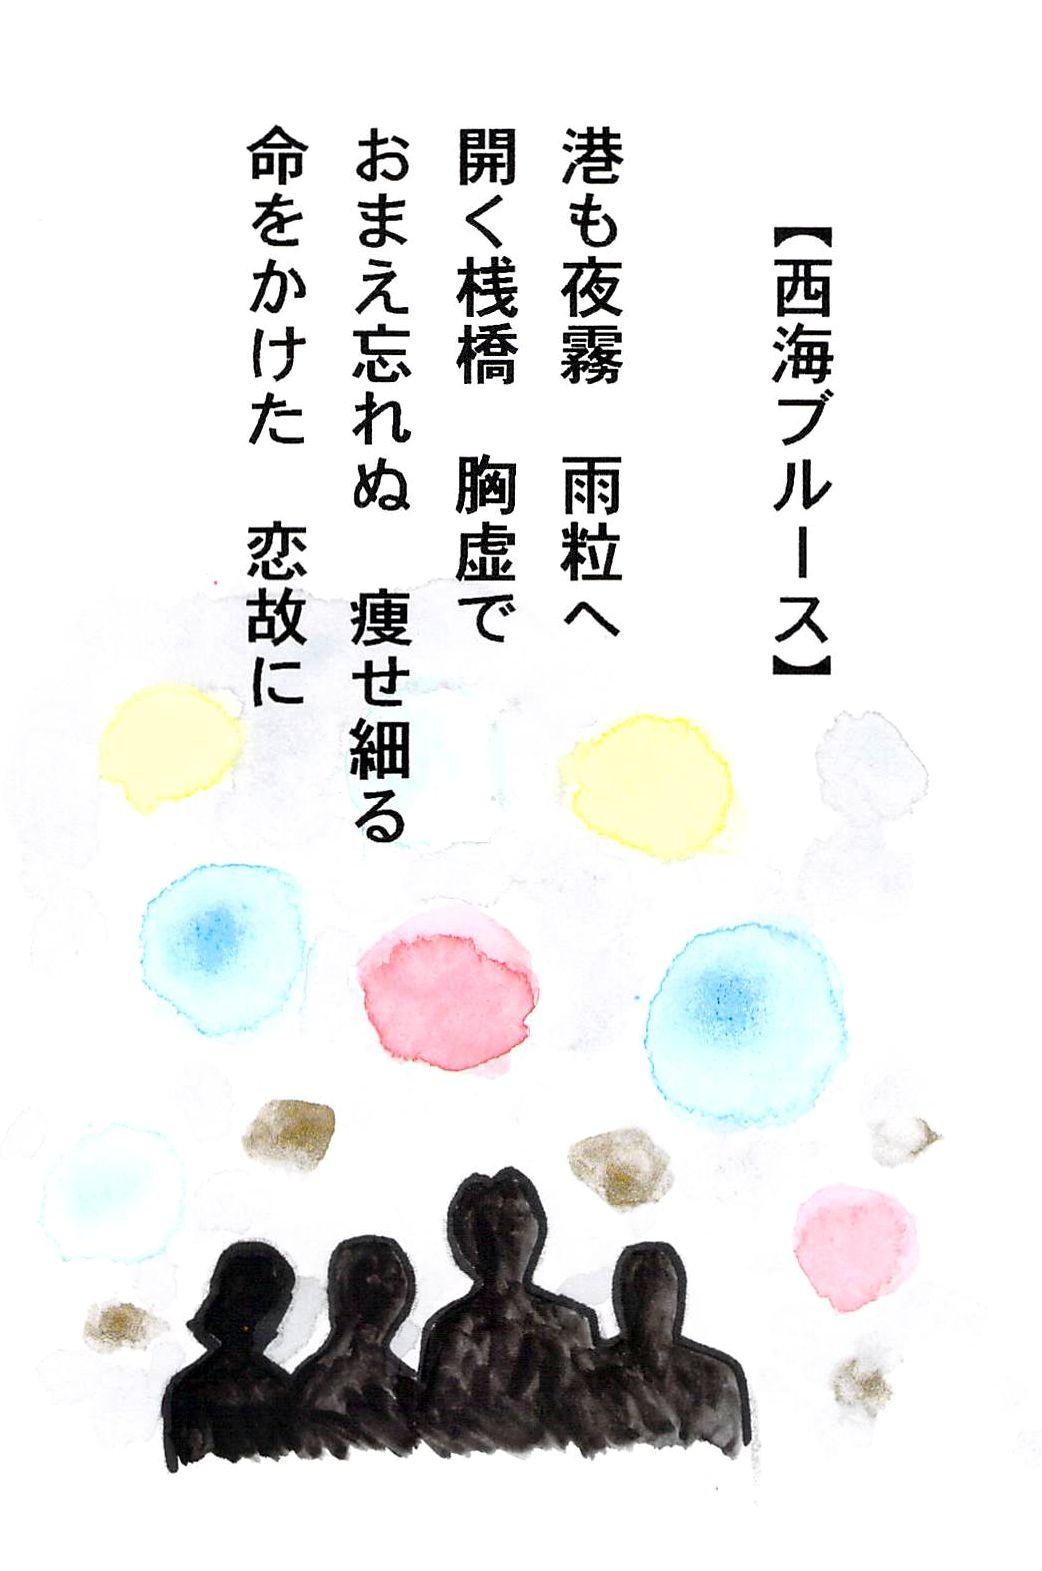 【西海ブルース】
港も夜霧　雨粒へ
開く桟橋　胸虚で
おまえ忘れぬ　痩せ細る
命をかけた　恋故に